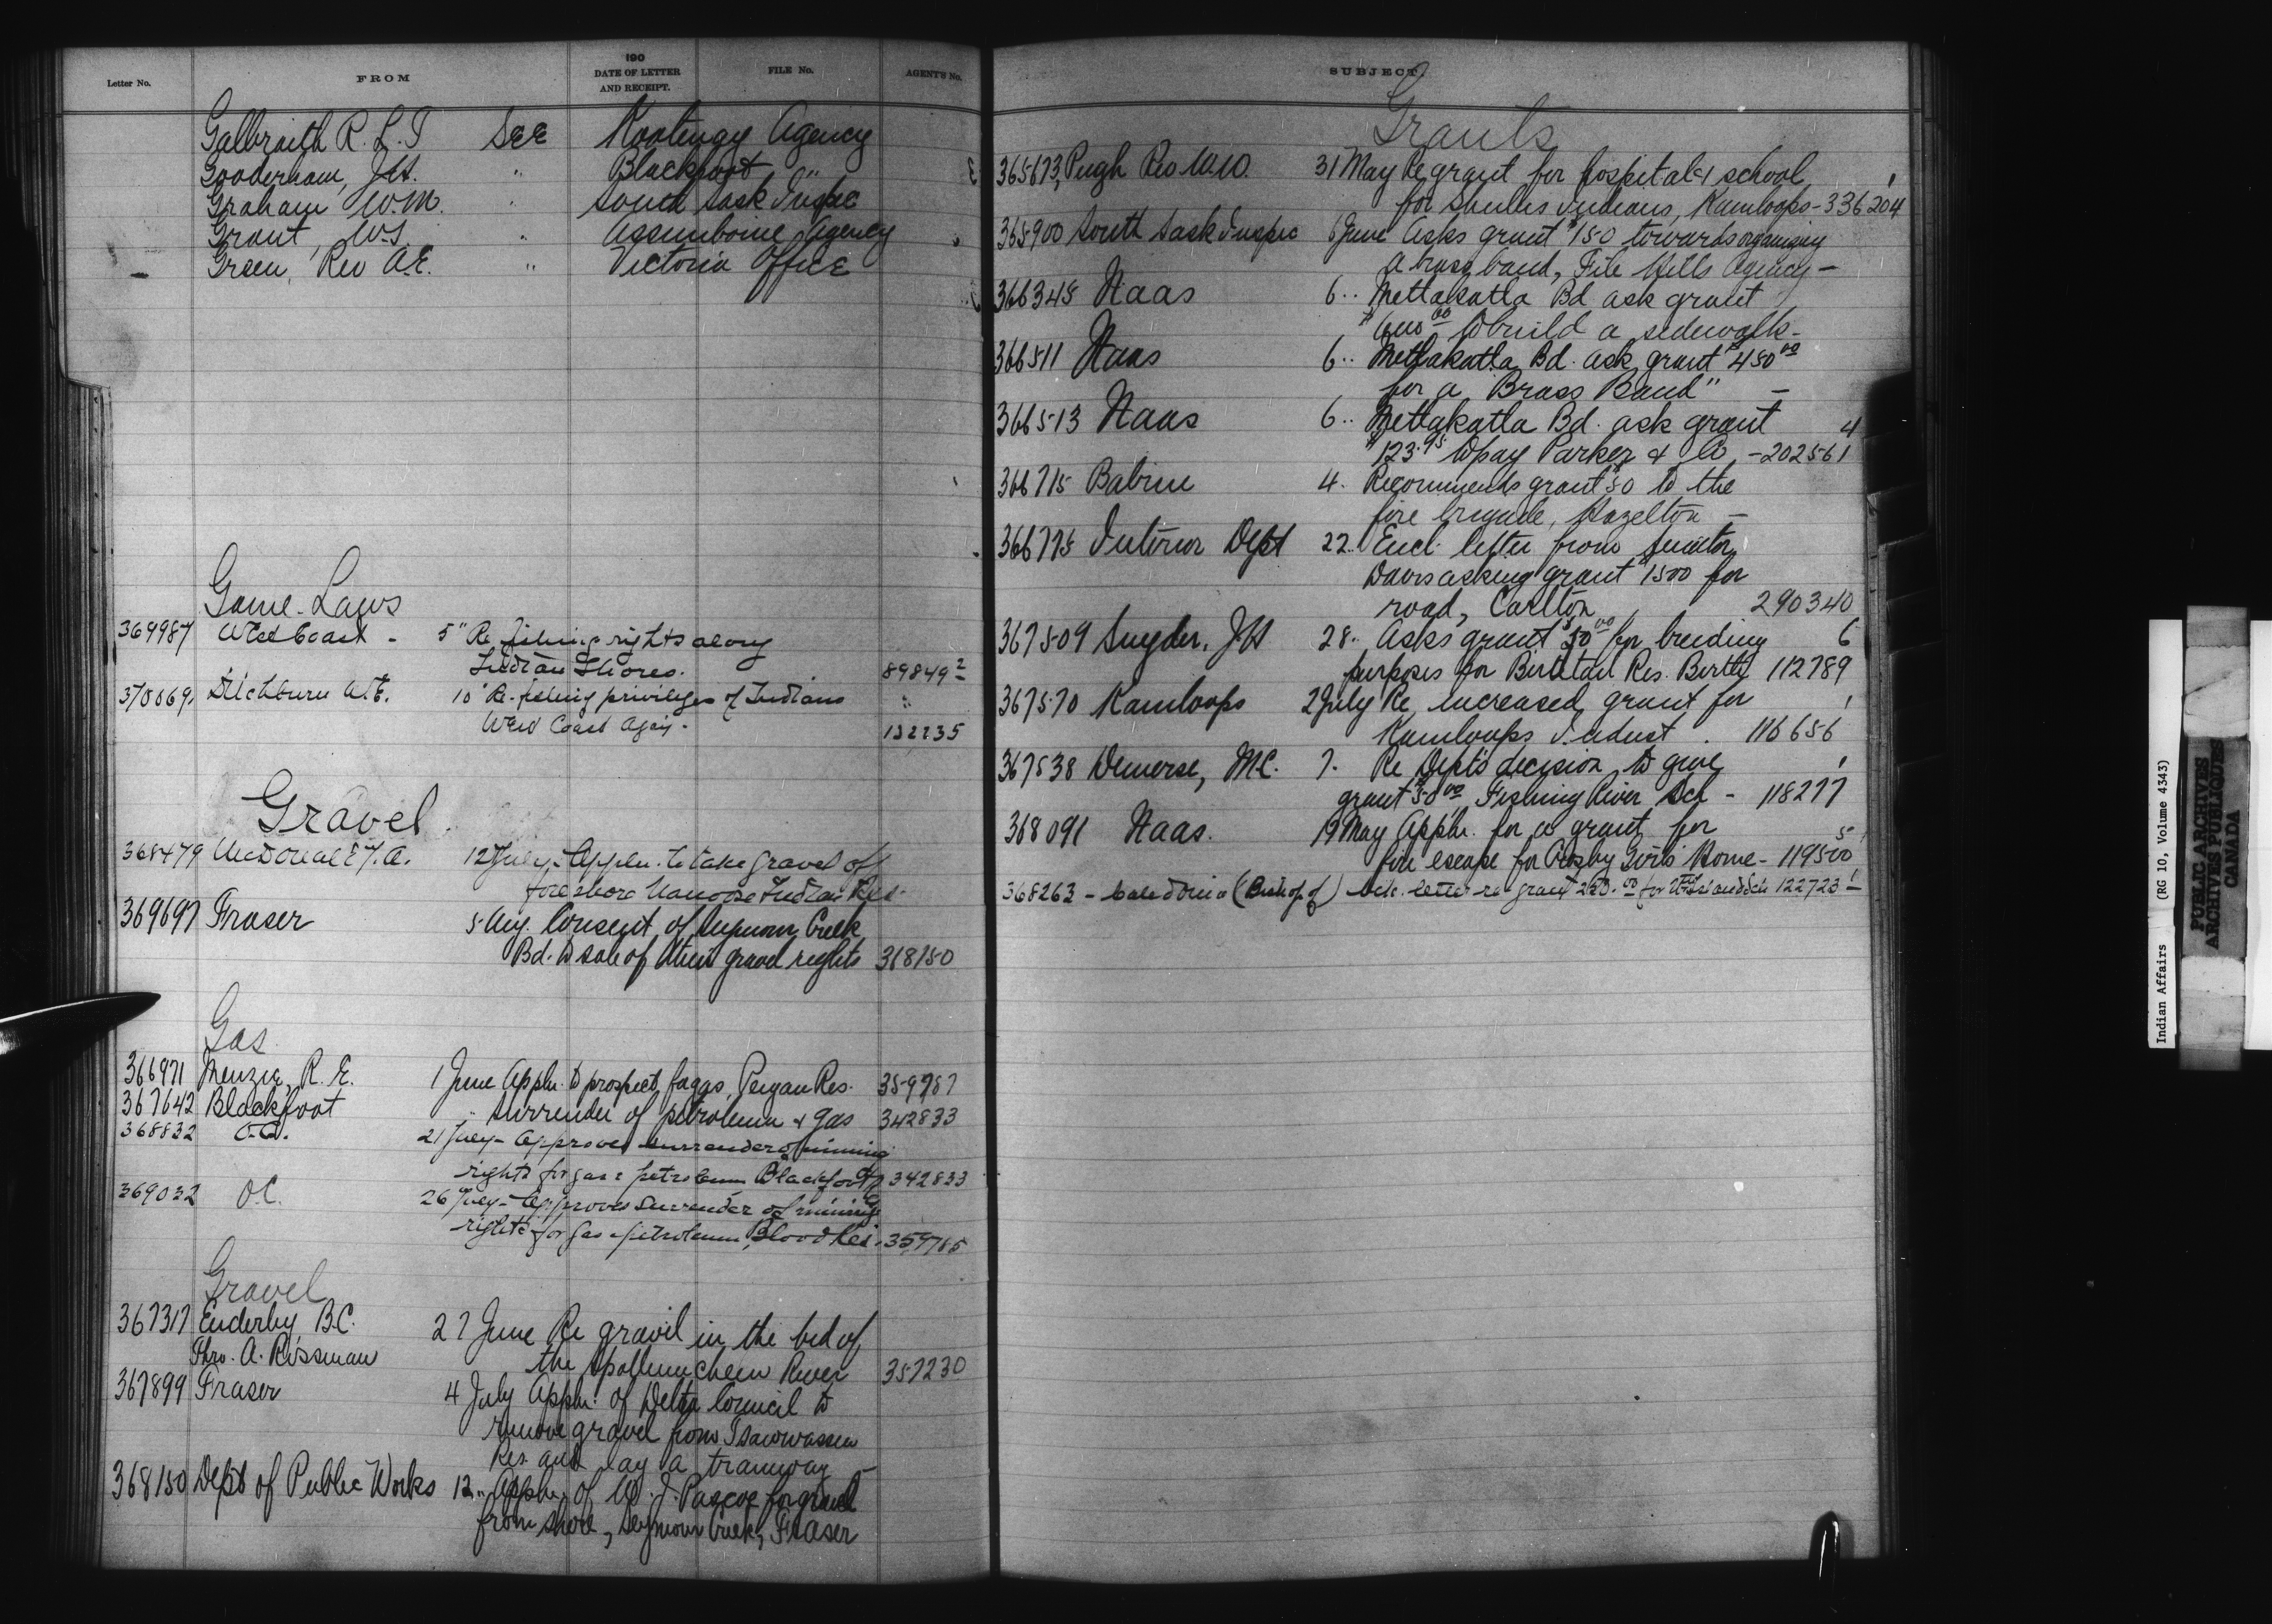 Letter No. FROM 190 DATE OF LETTER AND RECEIPT. FILE No. AGENT'S No.
Galbraith R. L. T See Kootenay Agency
Gooderham, J.H. " Blackfoot "
Graham W.M. " South Sask Inspec
Grant, W.S. " Assiniboine Agency
Green, Rev A.E. " Victoria Office
Game Laws
369987 West Coast - 5" Re fishing rights along
Indian Shores. 89849-2
370069 Ditchburn W.E. 10" Re fishing privileges of Indians "
West Coast Agcy. 132235
Gravel
368479 McDonald 12 July - Appln. to take gravel of
foreshore Nanoose Indian Res.
369697 Fraser 5 Aug. Consent of Seymour Creek
Bd. to sale of their gravel rights 368150
Gas
366971 Menzie, R. E. 1 June Appln. to prospect for gas, Peigan Res. 359787
367642 Blackfoot " Surrender of petroleum & gas 342833
368832 O.C. 21 July - Approves surrender of mining
rights for gas & petroleum Blackfoot 342833
369032 O.C. 26 July - Approves surrender of mining
rights for gas & petroleum, Blood Res. 359785
Gravel
367317 Enderby, B.C. 27 June Re gravel in the bed of
Thro. A. Rossman the Spallumcheen River 357230
367899 Fraser 4 July Appln. of Delta Council to
remove gravel from Tsawwassen
Res. and lay a tramway -
368150 Dept of Public Works 12 " Appln. of W. J. Pascoe for gravel
from shore, Seymour Creek, Fraser
SUBJECT
Grants
365673 Pugh Rev. W.W. 31 May Re grant for hospital & school
for Shulus Indians, Kamloops - 336204-1
365900 South Sask Inspec 6 June Asks grant $150 towards organizing
a brass band, File Hills Agency -
366345 Naas 6 " Metlakatla Bd ask grant
$600.00 to build a sidewalk -
366511 Naas 6 " Metlakatla Bd. ask grant $450.00
for a "Brass Band" -
366513 Naas 6 " Metlakatla Bd. ask grant 4
$123.95 to pay Parker & Co - 202561
366715 Babine 4 " Recommends grant $50 to the
fire brigade, Hazelton -
366775 Interior Dept 22 " Encl. letter from Senator
Davis asking grant $1500 for
road, Carlton 290340
367509 Snyder, J.H 28 " Asks grant $50.00 for breeding 6
purposes for Birdtail Res. Birtle 112789
367570 Kamloops 2 July Re increased grant for 1
Kamloops Indust. 116656
367538 Demerse, M.C. 7 " Re Dept's decision to give 1
grant $50.00 Fishing River Sch - 118277
368091 Naas. 19 May Appln. for a grant for 5
fire escape for Crosby Girls' Home - 119500
368263 - Caledonia (Bishop of) letter re grant 122723-1
Indian Affairs (RG 10, Volume 4343)
PUBLIC ARCHIVES
ARCHIVES PUBLIQUES
CANADA